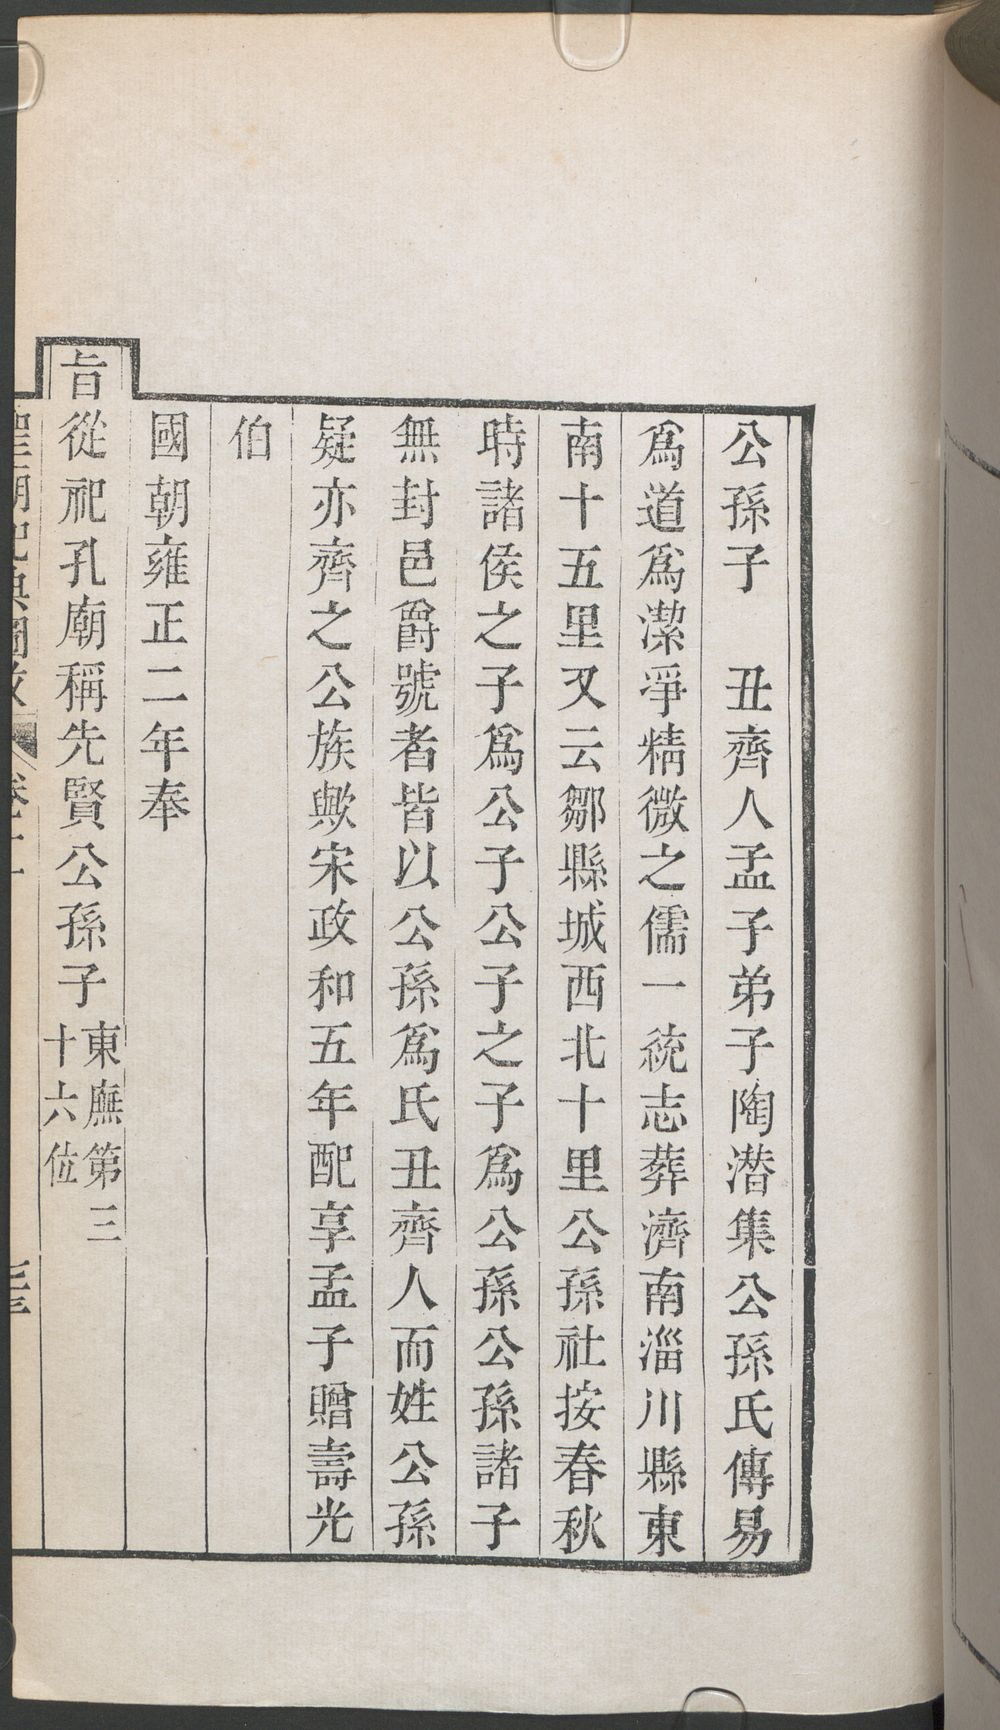 公孫子　丑齊人孟子弟子陶潛集公孫氏傳易
爲道爲潔淨精微之儒一統志葬濟南淄川縣東
南十五里又云鄒縣城西北十里公孫社按春秋
時諸侯之子爲公子公子之子爲公孫公孫諸子
無封邑爵號者皆以公孫爲氏丑齊人而姓公孫
疑亦齊之公族歟宋政和五年配享孟子贈壽光
伯
國朝雍正二年奉
旨從祀孔廟稱先賢公孫子
東廡第三
十六位
聖廟祀典圖攷